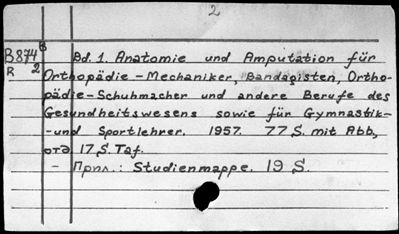 2
B874 B
R 2
Bd. 1. Anatomie und Amputation für
Orthopädie-Mechaniker, Bandagisten, Ortho-
pädie-Schuhmacher und andere Berufe des
Gesundheitswesens sowie für Gymnastik-
-und Sportlehrer. 1957. 77 S. mit Abb,
отд. 17 S. Taf.
- Прил.: Studienmappe. 19 S.